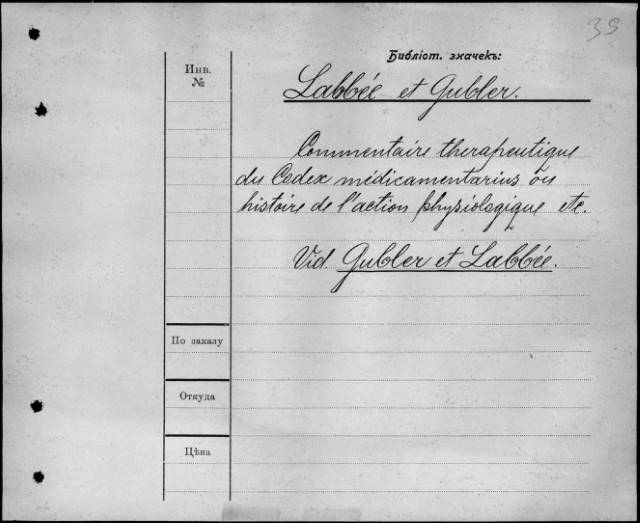 39
Библіот. значекъ:
Инв.
№
Labbée et Gubler.
Commentaire therapeutique
du Codex médicamentarius ou
histoire de l'action physiologique etc.
Vid. Gubler et Labbée.
По заказу
Откуда
Цѣна